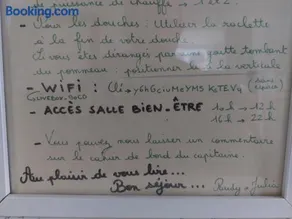 Booking.com
de puissance de chauffe → 1 et 2.
- Pour les douches : Utiliser la raclette
à la fin de votre douche.
Si vous êtes dérangés par une goutte tombant
du pommeau : positionner le à la verticale
- WIFI : Clé →
(sans espace)
- ACCÈS SALLE BIEN-ÊTRE 10h → 12h
16h → 22h
- Vous pouvez nous laisser un commentaire
sur le cahier de bord du capitaine.
Au plaisir de vous lire...
Bon séjour... Rudy & Julia